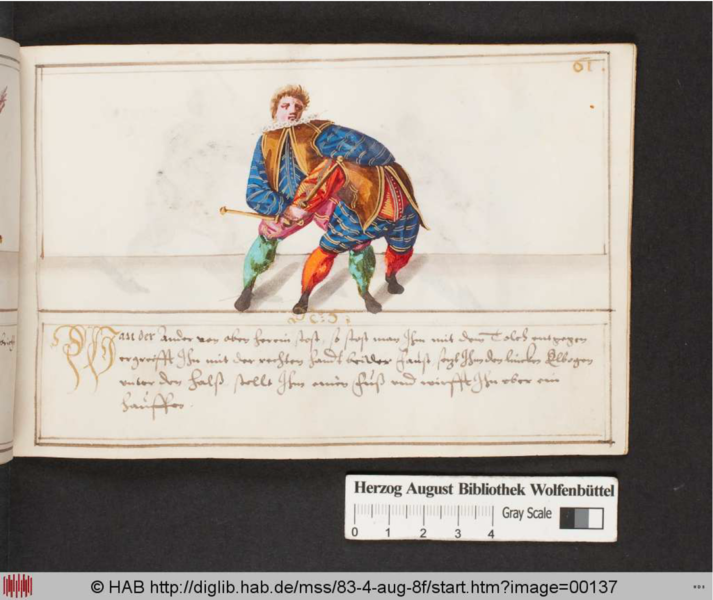 61.
Wan der Ander von oben herein stost, so stost man Ihm mit dem Tolch entgegen
ergreifft Ihn mit der rechten handt bei der faust setzt Ihm den lincken Elbogen
unter den halß stellt Ihm einen fuß und wirfft Ihn ober ein
hauffen
Herzog August Bibliothek Wolfenbüttel
Gray Scale
0 1 2 3 4
© HAB http://diglib.hab.de/mss/83-4-aug-8f/start.htm?image=00137